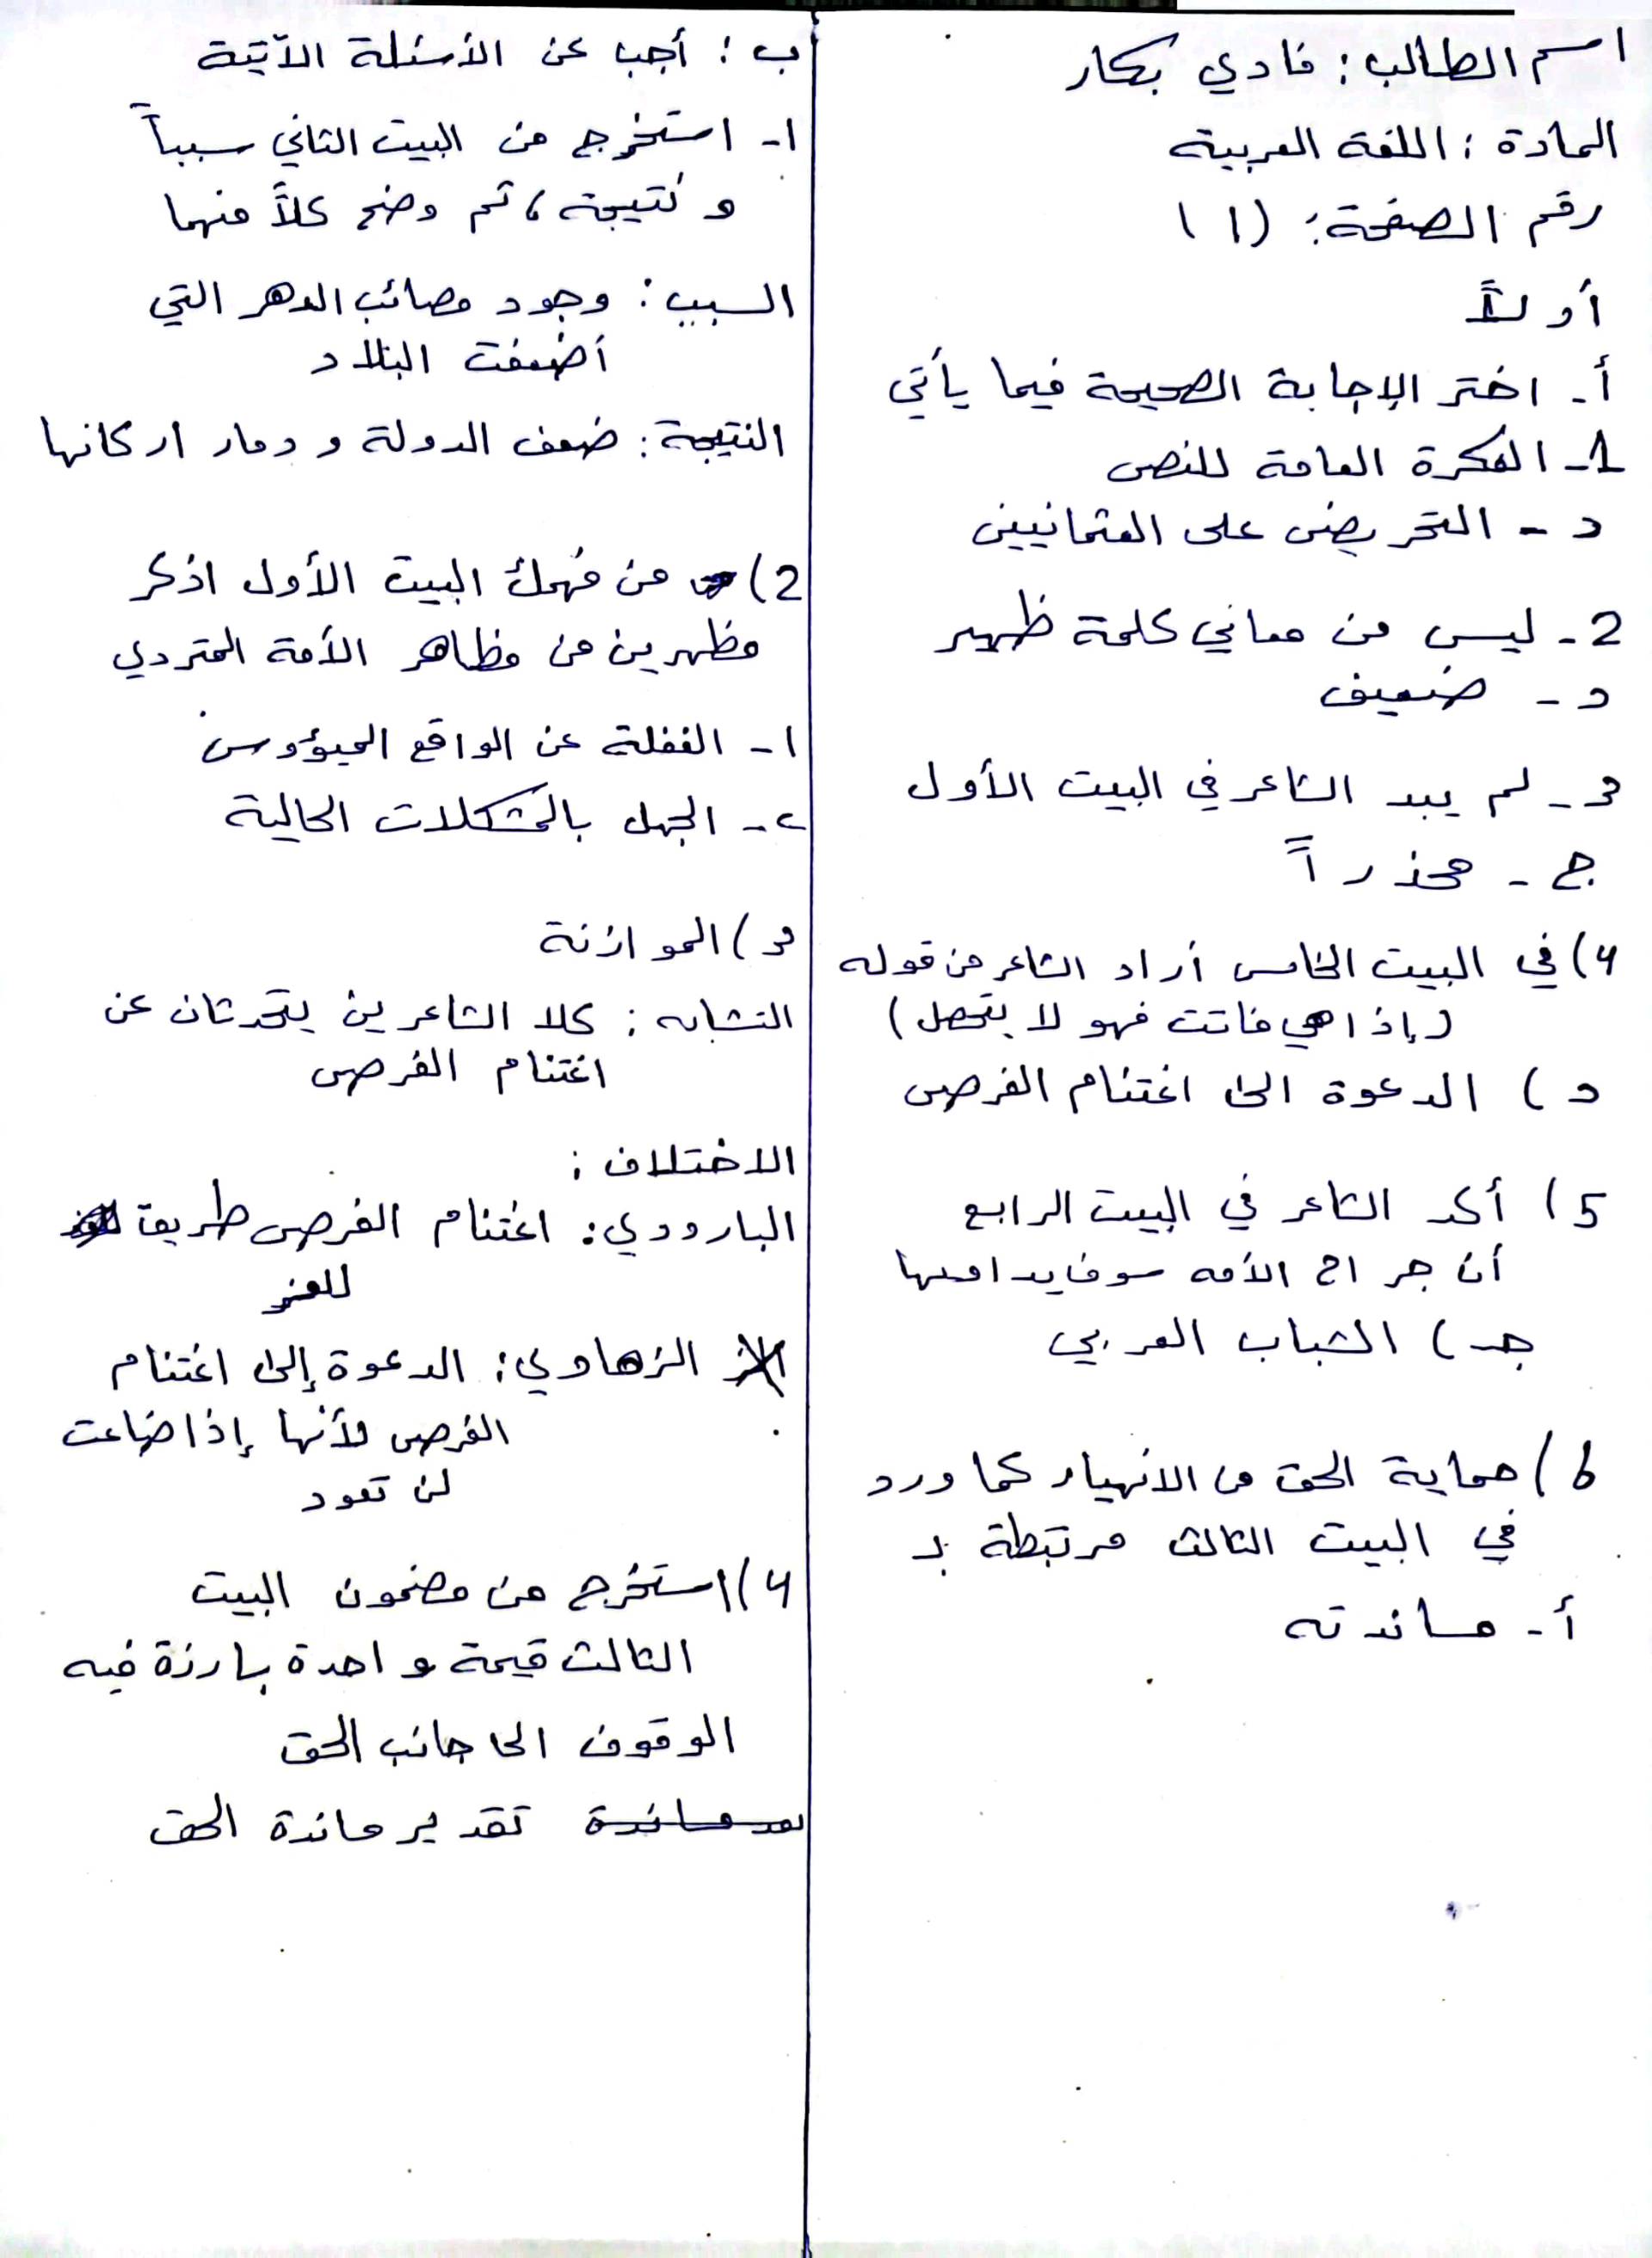 اسم الطالب : فادي بكار
المادة : اللغة العربية
رقم الصفحة : (١)
أولاً
أ - اختر الإجابة الصحيحة فيما يأتي
1- الفكرة العامة للنص
د - التحريض على العثمانيين
2 - ليس من معاني كلمة ظهير
د - ضعيف
3 - لم يبد الشاعر في البيت الأول
ج - محذراً
4) في البيت الخامس أراد الشاعر من قوله
(إذا هي فاتت فهو لا يتحصل)
د ) الدعوة الى اغتنام الفرص
5 ) أكد الشاعر في البيت الرابع
أن جراح الأمه سوف يداويها
جـ ) الشباب العربي
6 ) حماية الحق من الانهيار كما ورد
في البيت الثالث مرتبطة بـ
أ - مساندته
ب : أجب عن الأسئلة الآتية
١- استخرج من البيت الثاني سبباً
و نتيجة ، ثم وضح كلاً منهما
السبب : وجود مصائب الدهر التي
أضعفت البلاد
النتيجة : ضعف الدولة و دمار اركانها
2) من فهمك البيت الأول اذكر
مظهرين من مظاهر الأمة المتردي
١- الغفلة عن الواقع الميؤوس
٢- الجهل بالمشكلات الحالية
3) الموازنة
التشابه : كلا الشاعرين يتحدثان عن
اغتنام الفرص
الاختلاف :
البارودي : اغتنام الفرص طريق
للعز
الزهاوي : الدعوة إلى اغتنام
الفرص لأنها إذا ضاعت
لن تعود
4) استخرج من مضمون البيت
الثالث قيمة واحدة بارزة فيه
الوقوف الى جانب الحق
تقدير ماندة الحق